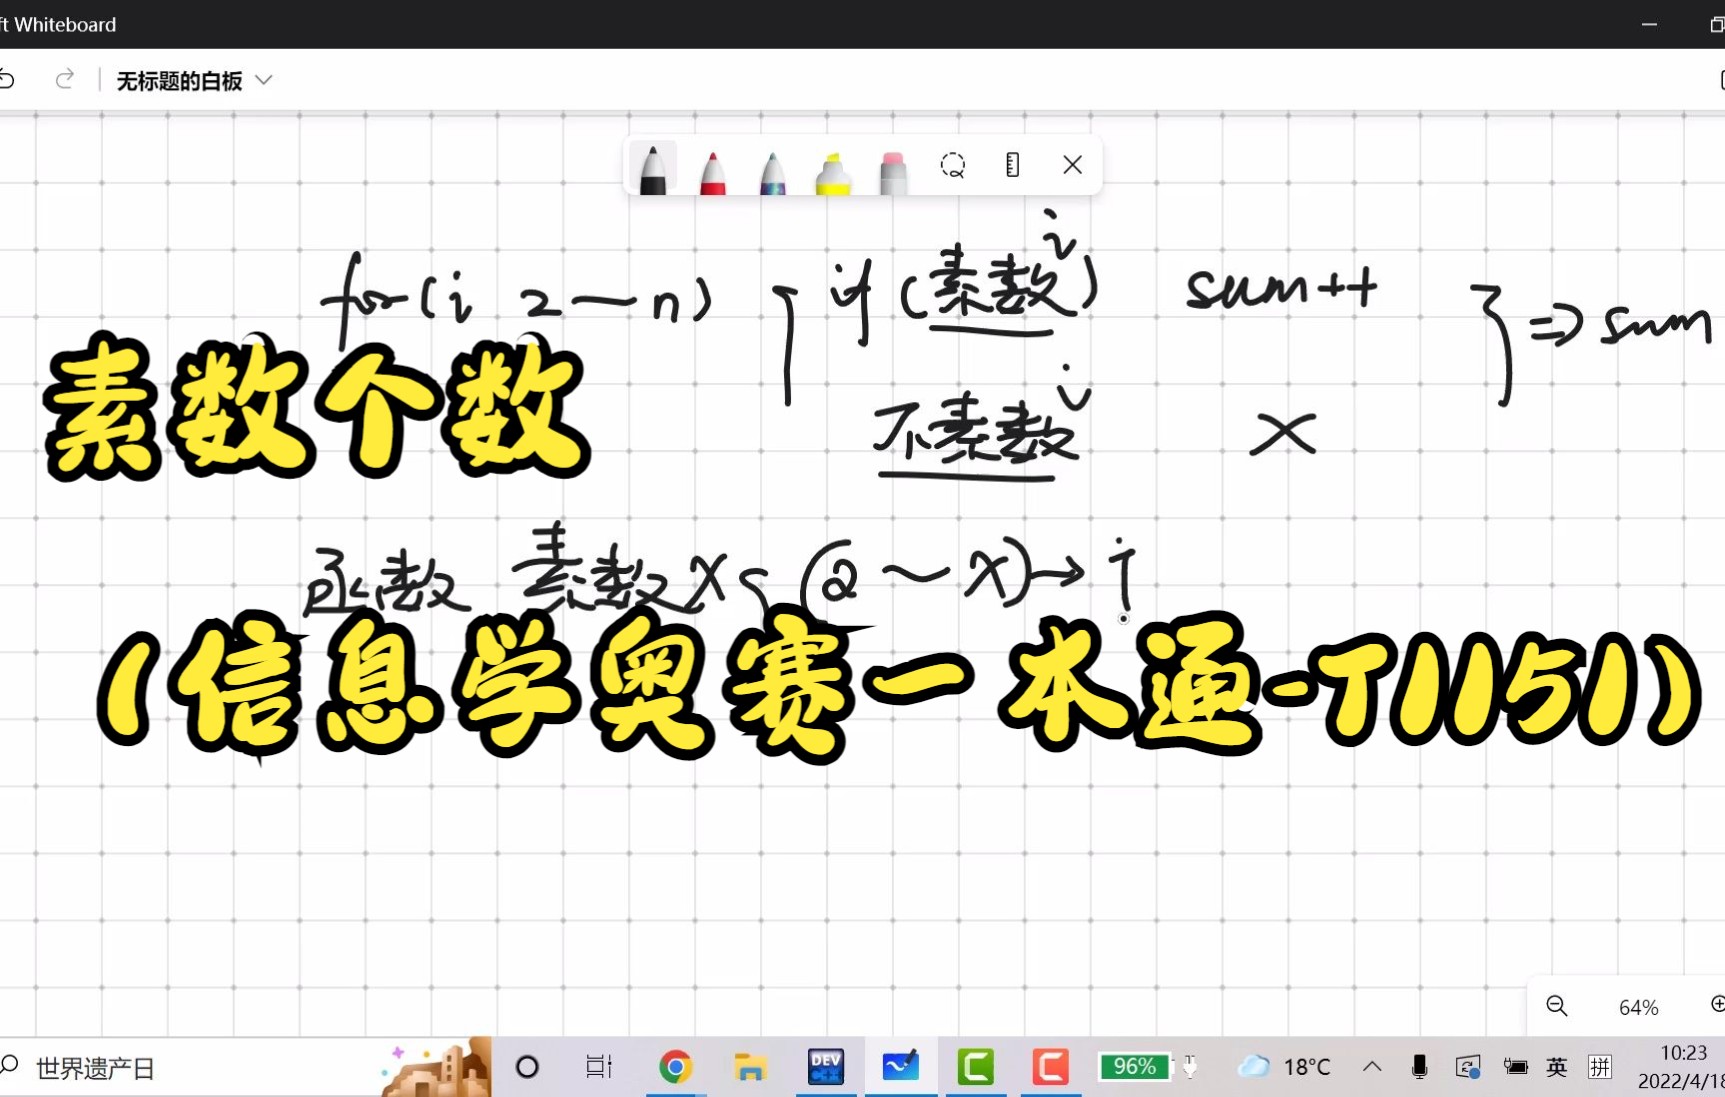 ft Whiteboard
无标题的白板
for(i 2—n) if(素数i) sum++ => sum
不素数i ×
素数个数
函数 素数x (2~x)→i
(信息学奥赛一本通-T1151)
64%
世界遗产日
DEV
C++
96%
18°C
英
拼
10:23
2022/4/18